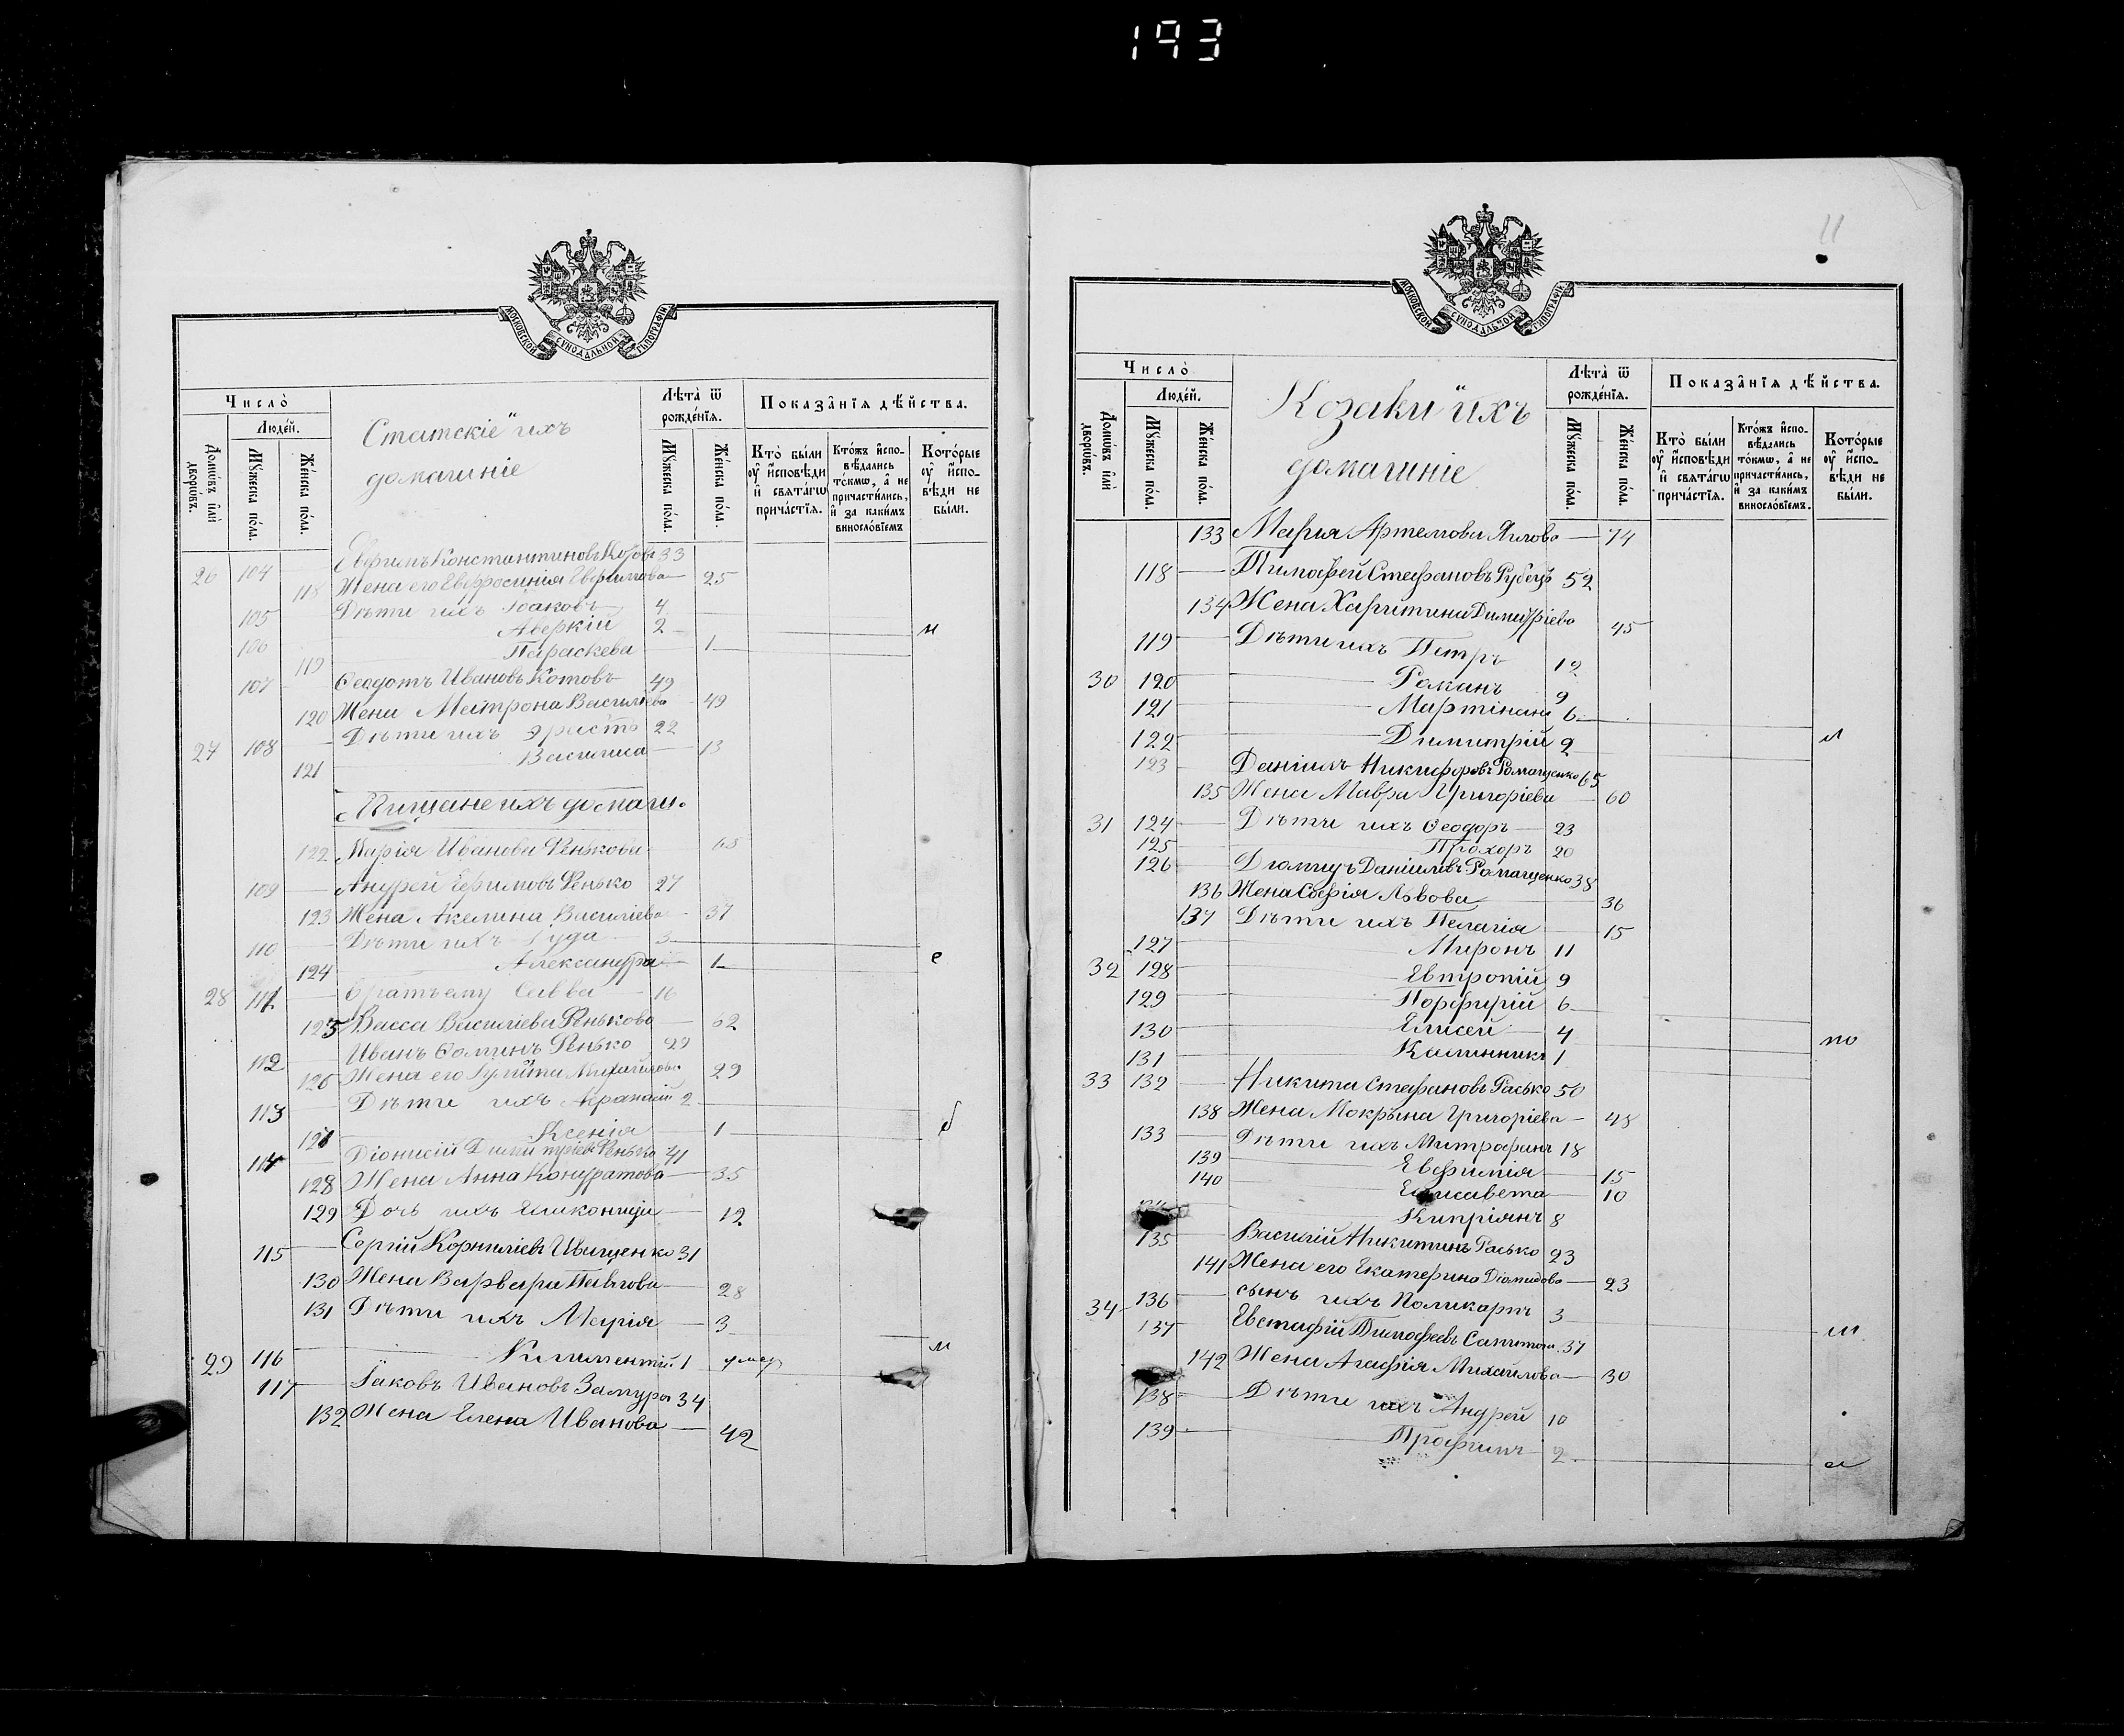 193
МОСКОВСКОЙ СѴНОДАЛЬНОЙ ТѴПОГРАФІИ
Число̀
Людей.
Домѡвъ и҆лѝ дворѡвъ.
Мꙋжеска по́ла.
Же́нска по́ла.
Статскіе ихъ
домашніе
Лѣта̀ ѿ рожде́нїѧ.
Мꙋжеска по́ла.
Же́нска по́ла.
Показа̂нїѧ дѣ́йства.
Кто̀ бы́ли оу҆ и҆сповѣди и҆ свѧта́гѡ прича́стїѧ.
Кто́жъ и҆спо-вѣ́дались то́кмѡ, а҆ не причасти́лись, и҆ за каки́мъ винослове́їемъ
Кото́рые оу҆ и҆спо-вѣди не бы́ли.
26 104 Евфимъ Константиновъ 33
118 Жена его Евфросинія Евфимова 25
105 Дѣти ихъ Іаковъ 4
106 Аверкій 2 м
119 Параскева 1
107 Ѳеодотъ Ивановъ Котовъ 49
120 Жена Матрона Василіева 49
27 108 Дѣти ихъ Эрастъ 22
121 Василиса 13
Мищане ихъ домаш.
122 Марія Иванова Ренькова 65
109 Андрей Ефимовъ Ренько 27
123 Жена Акелина Василіева 37
110 Дѣти ихъ Іуда 3
124 Александра 1 е
28 111 братъ ему Савва 16
125 Васса Василіева Ренькова 62
112 Иванъ Ѳоминъ Ренько 29
126 Жена его Іулита Михайлова 29
113 Дѣти ихъ Афанасій 2
127 Ксенія 1
114 Діонисій Димитріевъ Ренько 41
128 Жена Анна Кондратова 35
129 Дочь ихъ Еликонида 12
115 Сергій Корниліевъ Иващенко 31
130 Жена Варвара Павлова 28
131 Дѣти ихъ Марія 3 м
29 116 Климентій 1 умер
117 Іаковъ Ивановъ Замура 34
132 Жена Елена Иванова 42
11
МОСКОВСКОЙ СѴНОДАЛЬНОЙ ТѴПОГРАФІИ
Число̀
Людей.
Домѡвъ и҆лѝ дворѡвъ.
Мꙋжеска по́ла.
Же́нска по́ла.
Козаки ихъ
домашніе
Лѣта̀ ѿ рожде́нїѧ.
Мꙋжеска по́ла.
Же́нска по́ла.
Показа̂нїѧ дѣ́йства.
Кто̀ бы́ли оу҆ и҆сповѣди и҆ свѧта́гѡ прича́стїѧ.
Кто́жъ и҆спо-вѣ́дались то́кмѡ, а҆ не причасти́лись, и҆ за каки́мъ винослове́їемъ.
Кото́рые оу҆ и҆спо-вѣди не бы́ли.
133 Марія Артемова 74
118 Тимофей Стефановъ Рубецъ 52
134 Жена Харитина Димитріева 45
119 Дѣти ихъ Петръ 12
30 120 Романъ 9
121 Мартініанъ 6
122 Димитрій 2 м
123 Даніилъ Никифоровъ Ромащенко 65
135 Жена Мавра Григоріева 60
31 124 Дѣти ихъ Ѳеодоръ 23
125 Прохоръ 20
126 Діомидъ Даніиловъ Ромащенко 38
136 Жена Софія Львова 36
137 Дѣти ихъ Пелагія 15
127 Миронъ 11
32 128 Евтропій 9
129 Порфирій 6
130 Елисей 4 мо
131 Каллиникъ 1
33 132 Никита Стефановъ Расько 50
138 Жена Мокрына Григоріева 48
133 Дѣти ихъ Митрофанъ 18
139 Евфимія 15
140 Елисавета 10
Кипріянъ 8
135 Василій Никитинъ Расько 23
141 Жена его Екатерина Діомидова 23
34 136 сынъ ихъ Поликарпъ 3 м
137 Евстафій Тимофеевъ 37
142 Жена Агафія Михайлова 30
138 Дѣти ихъ Андрей 10
139 Трофимъ 2